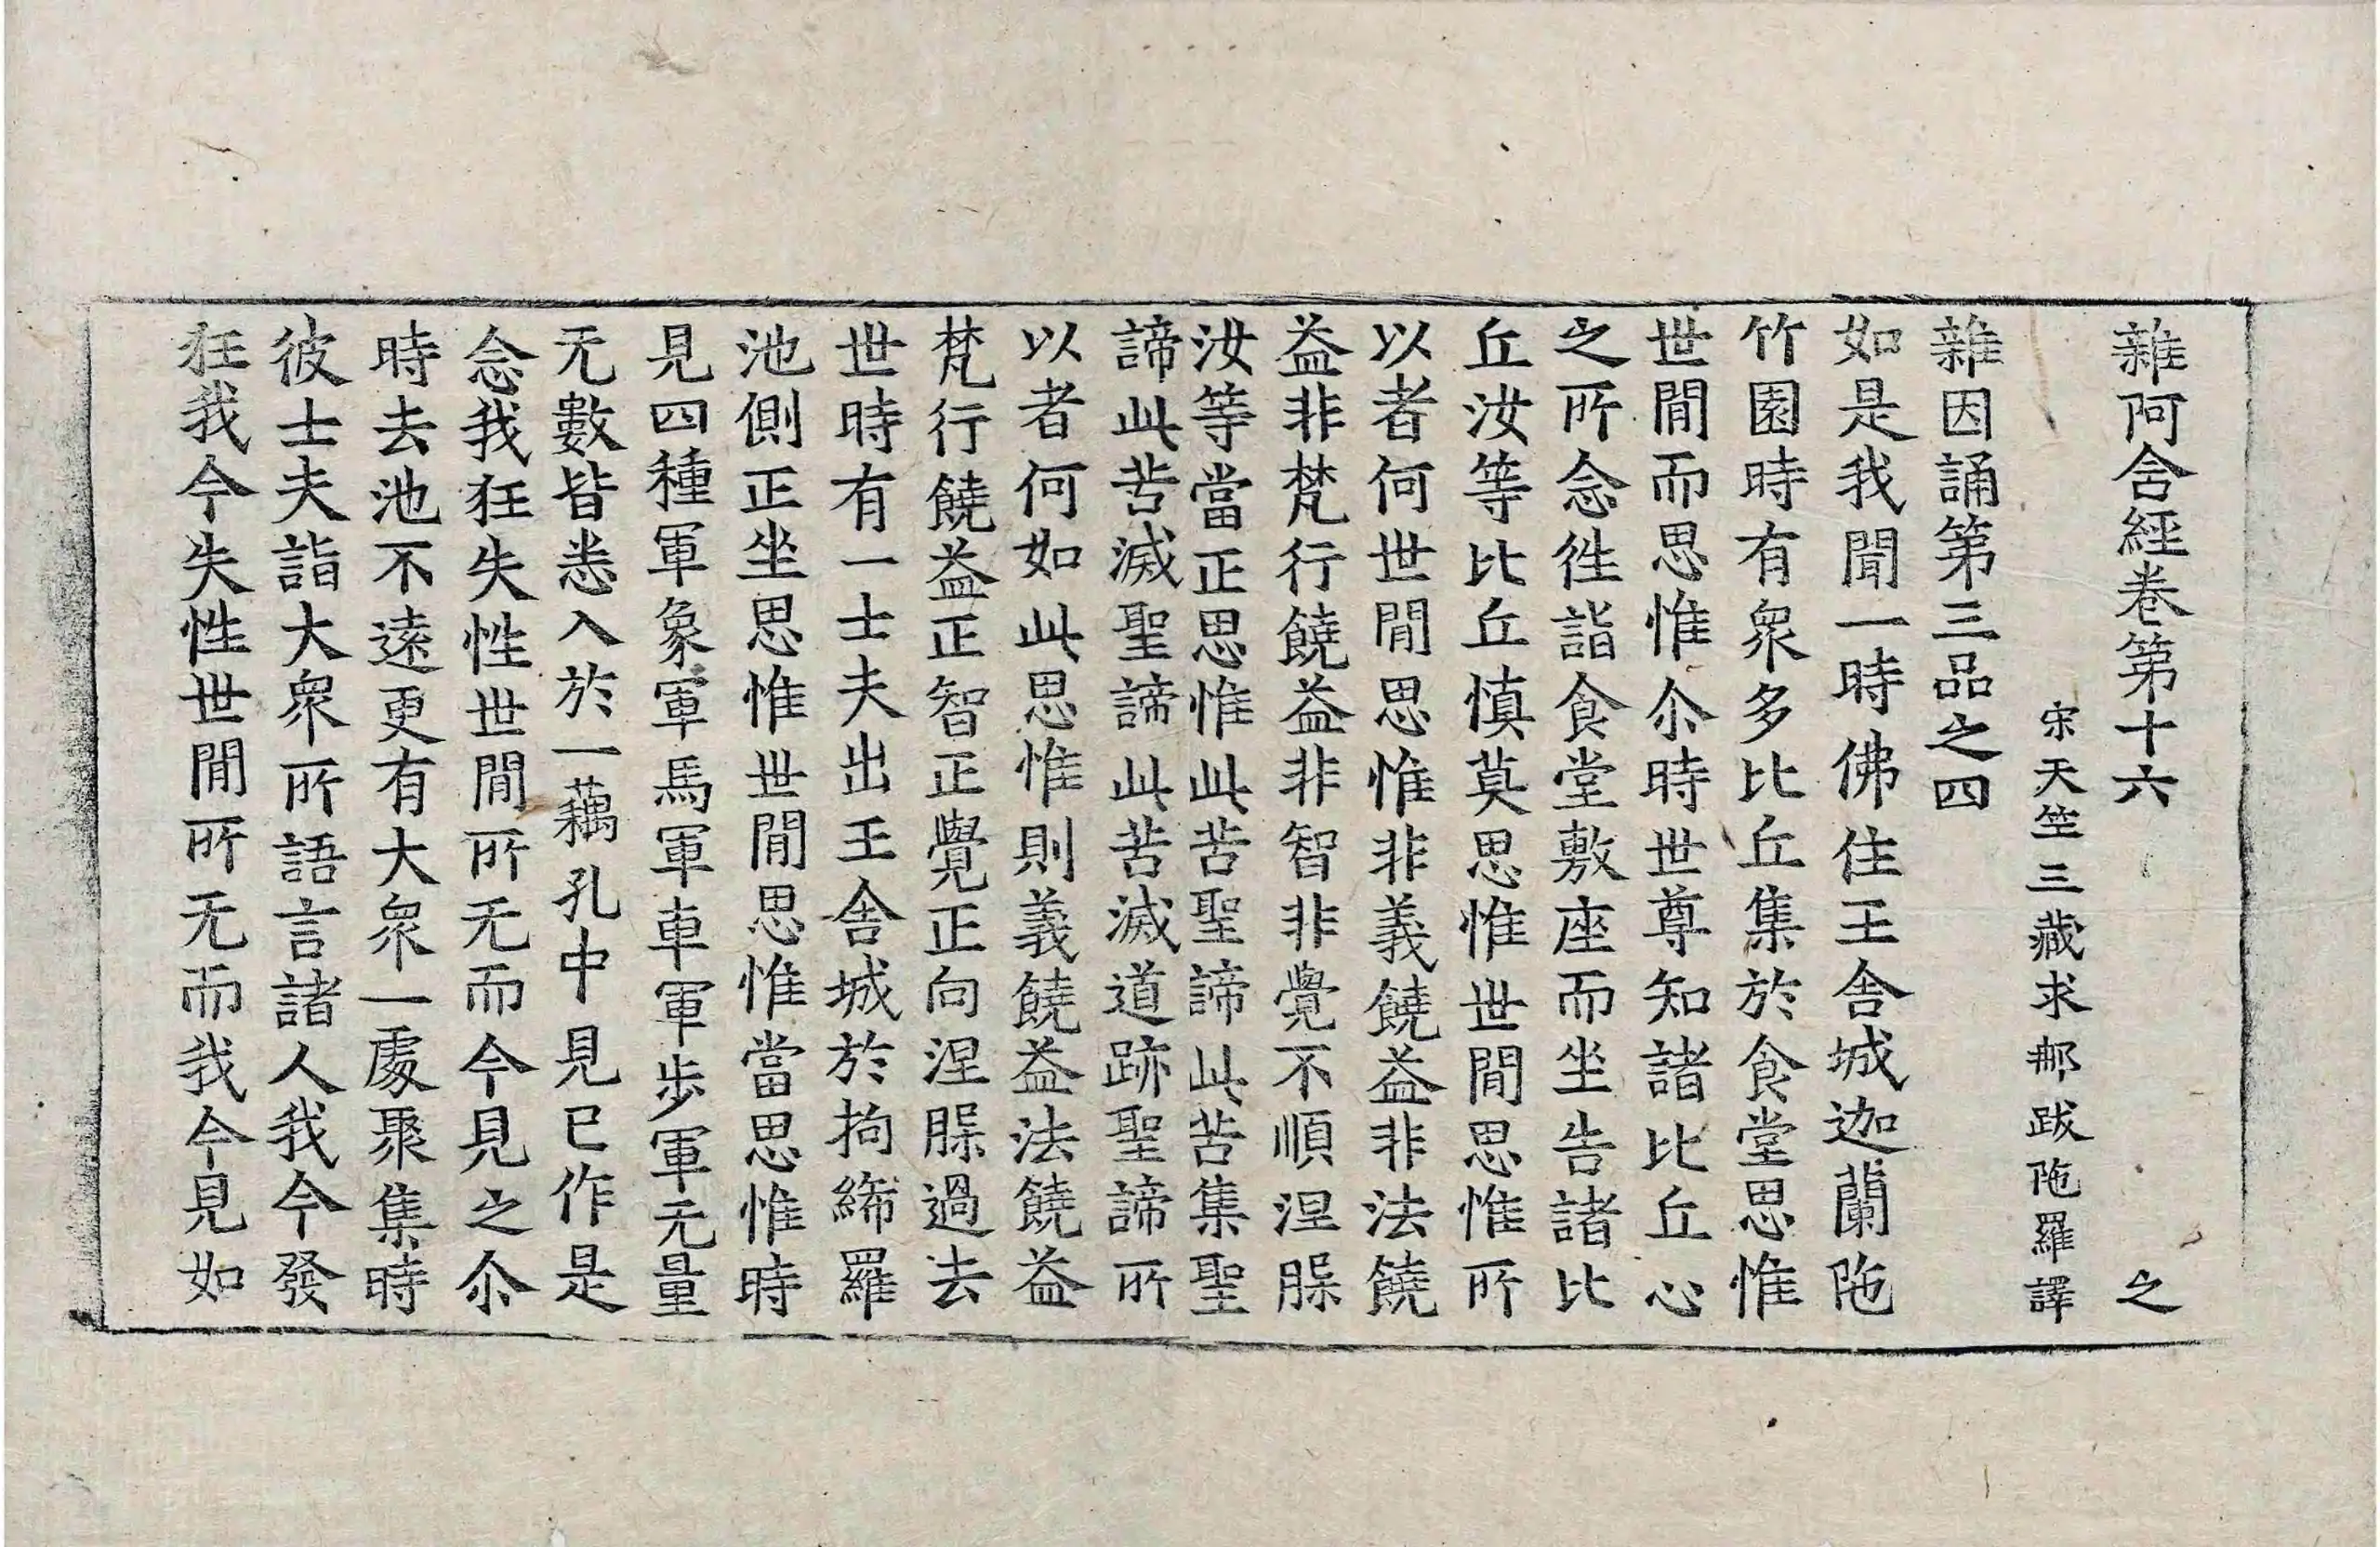 雜阿含經卷第十六 之
宋天竺三藏求那跋陁羅譯
雜因誦第三品之四
如是我聞一時佛住王舍城迦蘭陁
竹園時有衆多比丘集於食堂思惟
世間而思惟尒時世尊知諸比丘心
之所念往詣食堂敷座而坐告諸比
丘汝等比丘慎莫思惟世間思惟所
以者何世間思惟非義饒益非法饒
益非梵行饒益非智非覺不順涅槃
汝等當正思惟此苦聖諦此苦集聖
諦此苦滅聖諦此苦滅道跡聖諦所
以者何如此思惟則義饒益法饒益
梵行饒益正智正覺正向涅槃過去
世時有一士夫出王舍城於拘絺羅
池側正坐思惟世間思惟當思惟時
見四種軍象軍馬軍車軍步軍无量
无數皆悉入於一藕孔中見已作是
念我狂失性世間所无而今見之尒
時去池不遠更有大衆一處聚集時
彼士夫詣大衆所語言諸人我今發
狂我今失性世間所无而我今見如